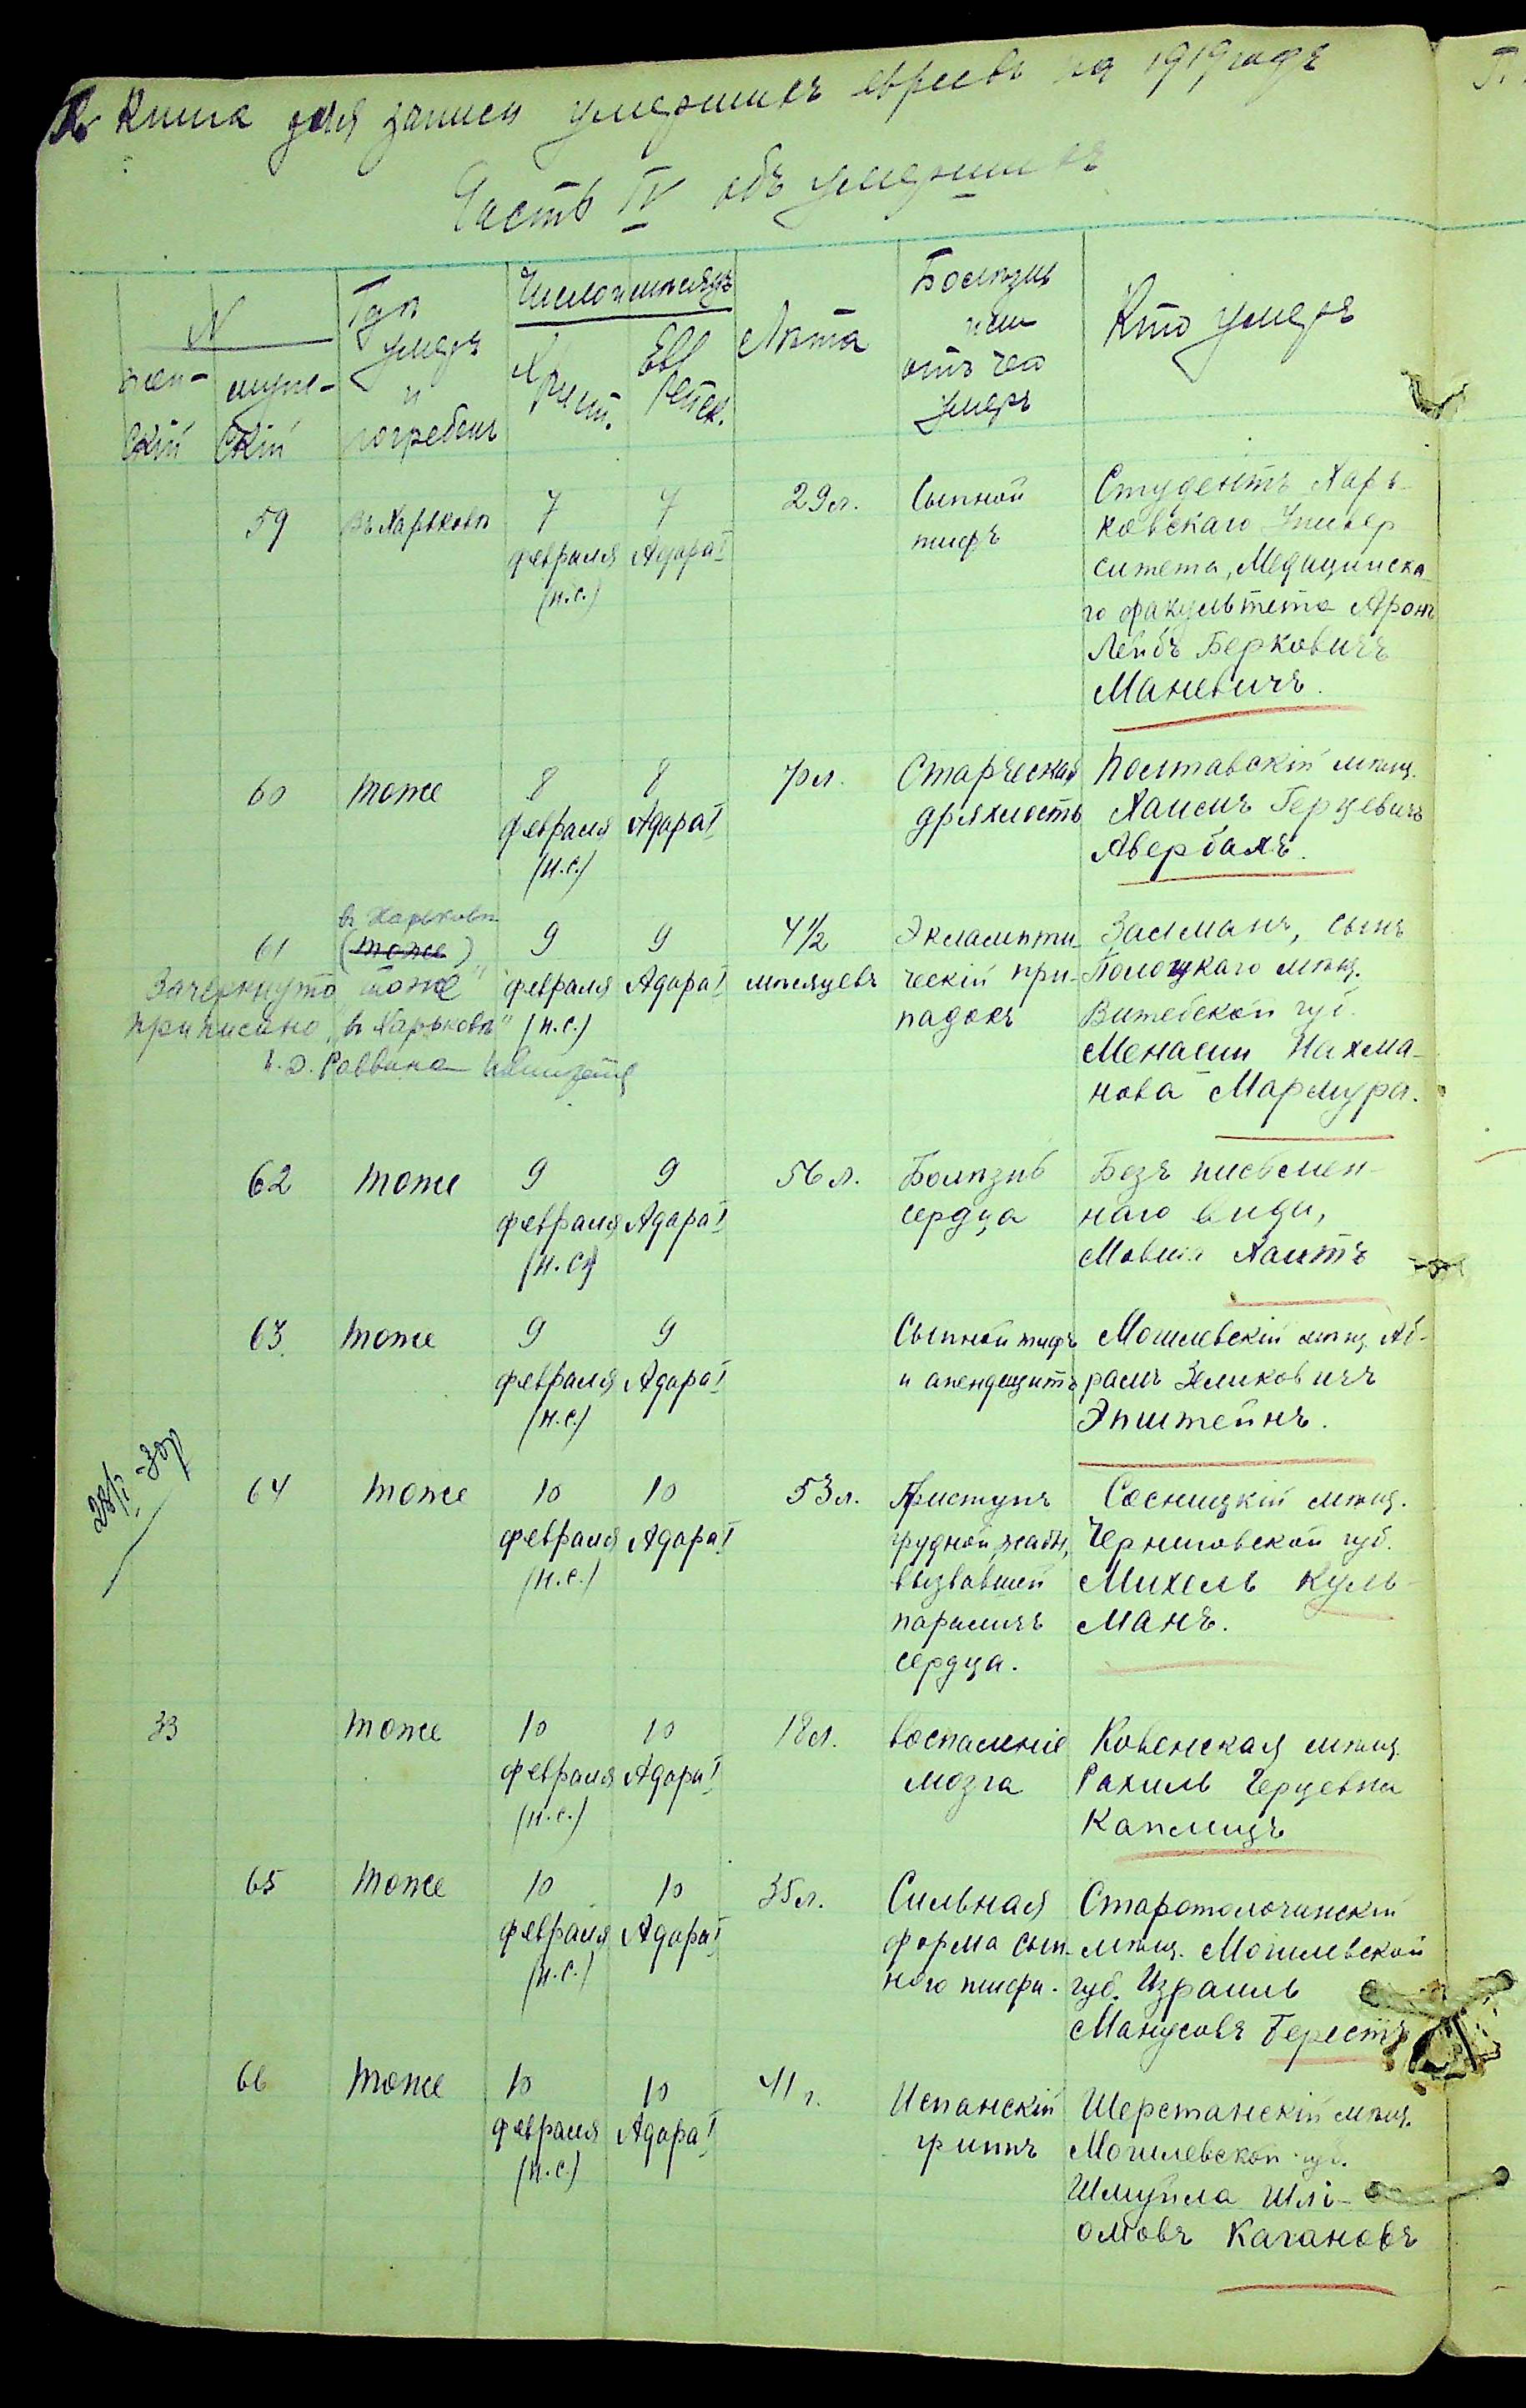 Книга для записи умершихъ евреевъ на 1919 годъ
Часть IV объ умершихъ
N
жен-
скій
муже-
скій
Гдѣ
умеръ
и
погребенъ
Число и мѣсяцъ
Христ.
Еврейск.
Лѣта
Болѣзнь
или
отъ чего
умеръ
Кто умеръ
59
въ Харьковѣ
7
февраля
(н.с.)
7
Адара I
29 л.
Сыпной
тифъ
Студентъ Харь-
ковскаго Универ
ситета, Медицинска-
го факультета Аронъ
Лейбъ Берковичъ
Маневичъ.
60
тоже
8
февраля
(н.с.)
8
Адара I
70 л.
Старческая
дряхлость
Полтавскій мѣщ.
Хаимъ Герцевичъ
Авербахъ.
61
въ Харьковѣ
(тоже)
9
февраля
(н.с.)
9
Адара I
4 1/2
мѣсяцевъ
Эклампти-
ческій при-
падокъ
Залманъ, сынъ
Полоцкаго мѣщ.
Витебской губ.
Менаши Нахма-
нова Мармура.
Зачеркнуто "тоже"
приписано "въ Харьковѣ"
И. д. Раввина
62
тоже
9
февраля
(н.с.)
9
Адара I
56 л.
Болѣзнь
сердца
Безъ письмен-
наго вида,
Мовша Хаитъ
63
тоже
9
февраля
(н.с.)
9
Адара I
Сыпной тифъ
и апендицитъ
Могилевскій мѣщ. Аб-
рамъ Зеликовичъ
Эпштейнъ.
64
тоже
10
февраля
(н.с.)
10
Адара I
53 л.
Приступъ
грудной жабы,
вызвавшей
параличъ
сердца.
Сосницкій мѣщ.
Черниговской губ.
Михель Куль-
манъ.
33
тоже
10
февраля
(н.с.)
10
Адара I
18 л.
воспаленіе
мозга
Ковенская мѣщ.
Рахиль Герцевна
Каплицъ
65
тоже
10
февраля
(н.с.)
10
Адара I
35 л.
Сильная
форма сып-
ного тифа.
Старотолочинскій
мѣщ. Могилевской
губ. Израиль
Манусовъ Берестъ
66
тоже
10
февраля
(н.с.)
10
Адара I
41 г.
Испанскій
гриппъ
Шерстанскій мѣщ.
Могилевской губ.
Шмуйла Шлі-
омовъ Кагановъ